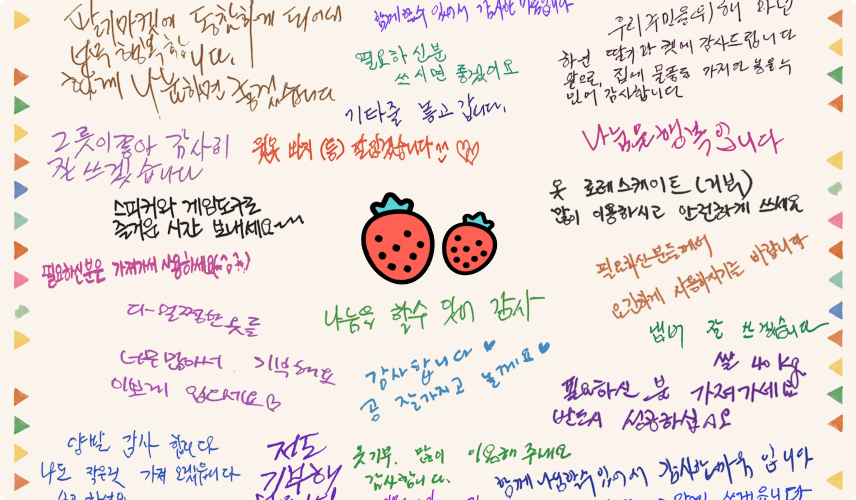 딸기마켓에 동참하게 되어서
너무 행복합니다.
함께 나눔하면 좋겠습니다
함께할수 있어서 감사한 마음입니다
필요하신분
쓰시면 좋겠어요
기타줄 놓고 갑니다.
우리 주민을위해
하던 딸기마켓에 감사드립니다
앞으로, 집에 물품을 가지고 봉을수
있어 감사합니다
그릇이좋아 감사히
잘 쓰겠습니다
윗옷 바지 (등) 잘입겠습니다
나눔은 행복입니다
옷 로레스케이트 (기부)
많이 이용하시고 안전하게 쓰세요
스피커와 게임도구로
즐거운 시간 보내세요~
필요하신분은 가져가서 사용하세요
필요하신분들께서
요긴하게 사용하시기를 바랍니다
다-멀쩡한 옷을
나눔을 할수 있어 감사
냄비 잘 쓰겠습니다
너무 많아서. 기부해요
이쁘게 입으세요
감사합니다
공 잘가지고 놀께요
쌀 40kg
필요하신 분 가져가세요
반드시 성공하십시오
양말 감사 합니다
나도 작은것 가져 오겠습니다
저도
기부해
옷기부. 많이 이용해 주세요
감사합니다.
함께 나눔할수있어서 감사한마음 입니다